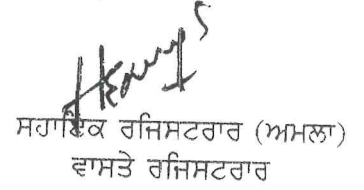 ਸਹਾਇਕ ਰਜਿਸਟਰਾਰ (ਅਮਲਾ)
ਵਾਸਤੇ ਰਜਿਸਟਰਾਰ